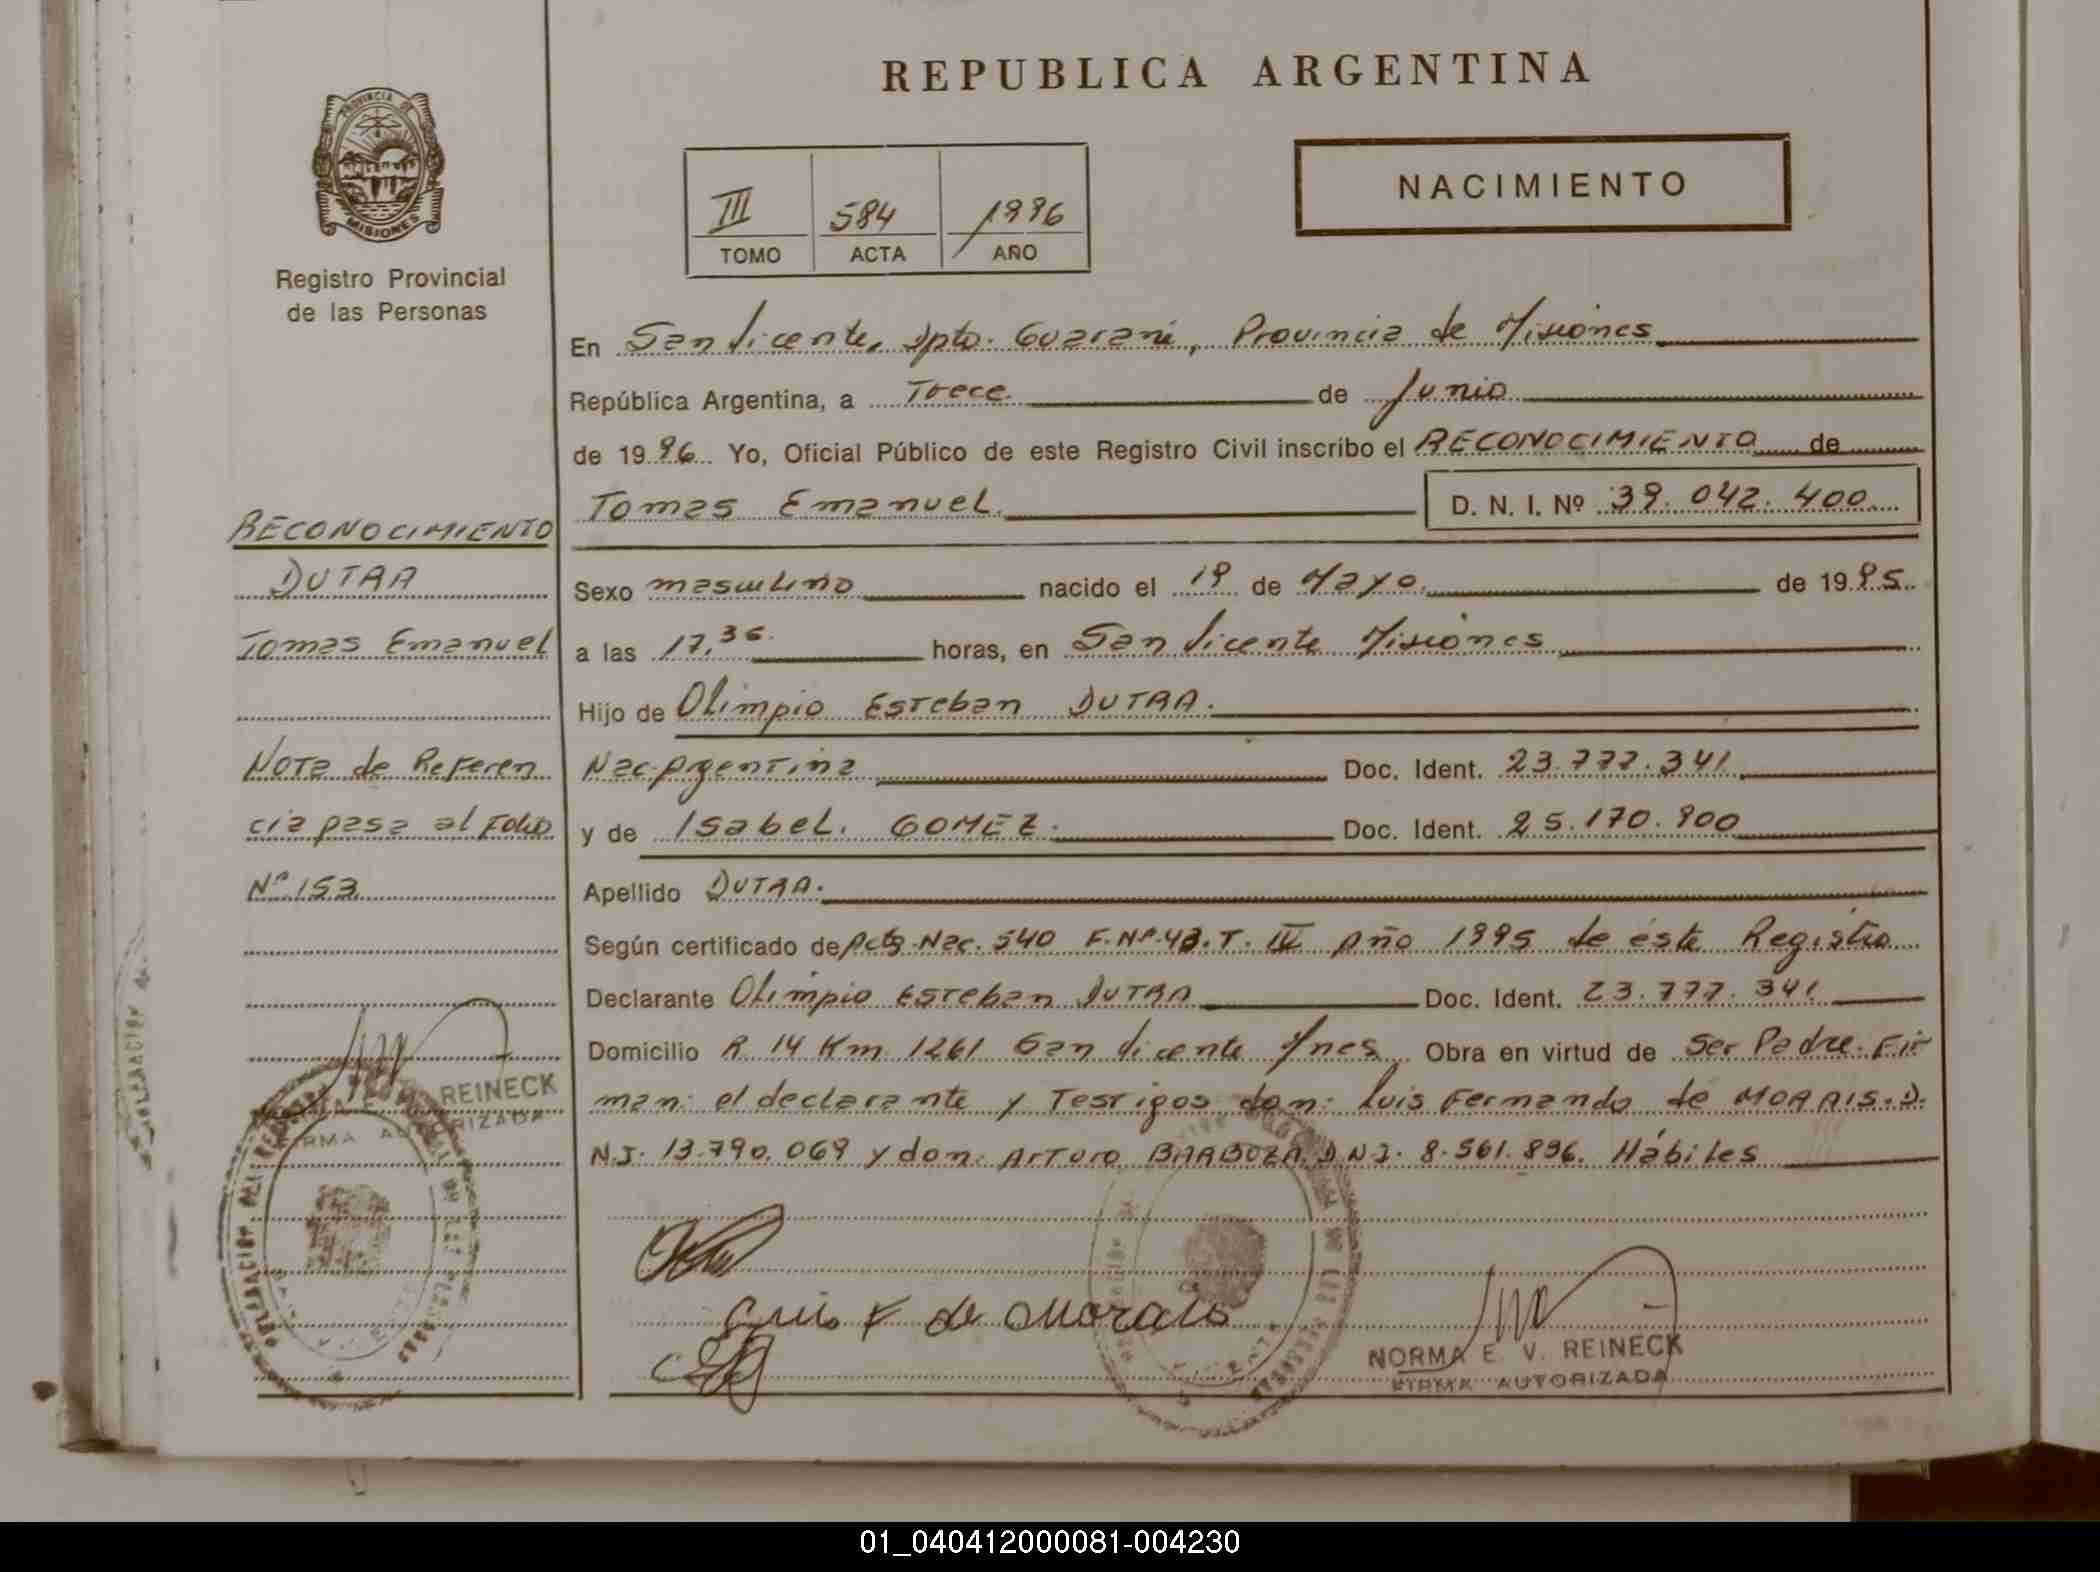 REPUBLICA ARGENTINA
PROVINCIA DE
MISIONES
Registro Provincial
de las Personas
III 584 1996
TOMO ACTA AÑO
NACIMIENTO
En San Vicente, Dpto. Guarani, Provincia de Misiones
República Argentina, a Trece de Junio
de 1996 Yo, Oficial Público de este Registro Civil inscribo el RECONOCIMIENTO de
Tomas Emanuel D. N. I. Nº 39.042.400
Sexo masculino nacido el 19 de Mayo de 1995
a las 17,36 horas, en San Vicente Misiones
Hijo de Olimpio Esteban DUTRA.
Nac. Argentina Doc. Ident. 23.777.341
y de Isabel. GOMEZ. Doc. Ident. 25.170.900
Apellido DUTRA.
Según certificado de Acta Nac. 540 F. Nº 43. T. IV Año 1995 de éste Registro
Declarante Olimpio Esteban DUTRA Doc. Ident. 23.777.341
Domicilio R. 14 Km 1261 San Vicente Mnes Obra en virtud de Ser Padre. Fir
man: el declarante y Testigos don: Luis Fernando de MORAIS. D.
N.I. 13.790.069 y don: Arturo BARBOZA D.N.I. 8.561.896. Hábiles
Luis F de Morais
NORMA E. V. REINECK
FIRMA AUTORIZADA
RECONOCIMIENTO
DUTRA
Tomas Emanuel
Nota de Referen
cia pasa al Folio
Nº 153
REINECK
FIRMA AUTORIZADA
01_040412000081-004230